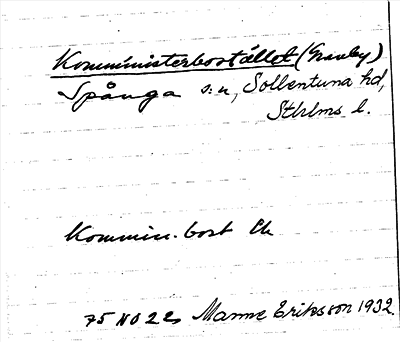 Kommisterbostället (Granby)
Spånga s:n, Sollentuna hd,
Sthlms l.
Kommin. bost Ek
75 NO 2 e, Manne Eriksson 1932.